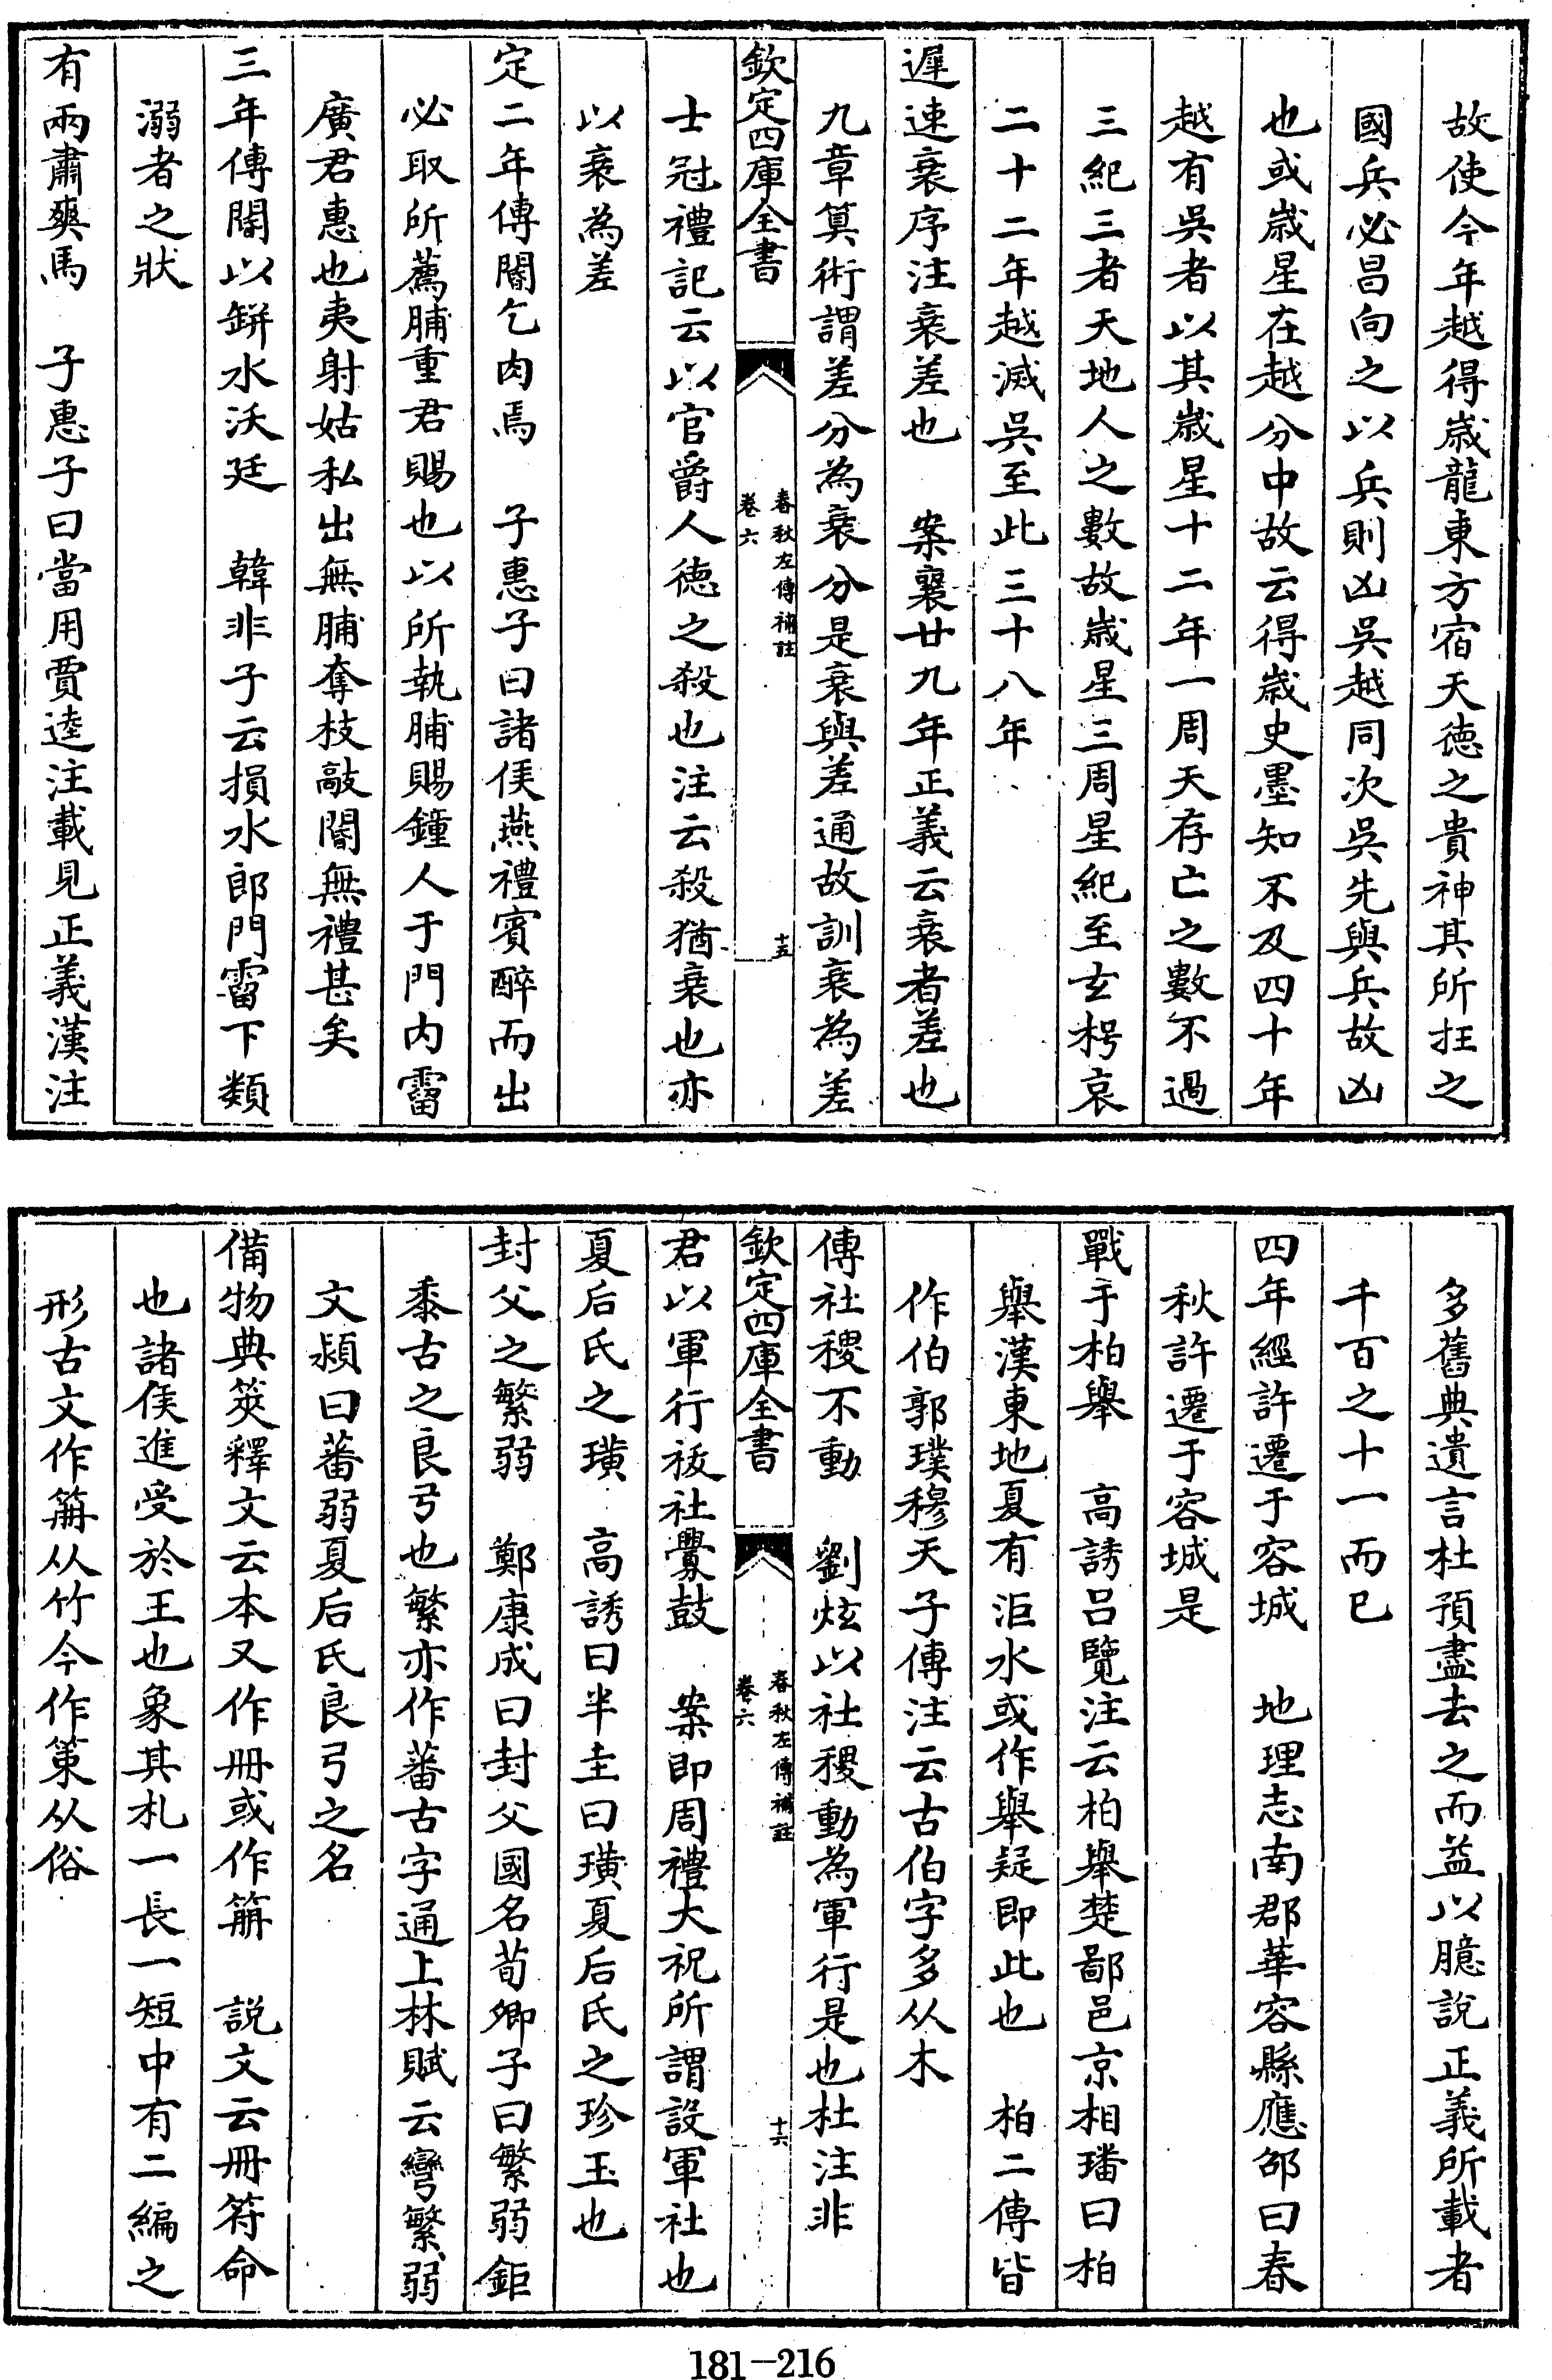 故使今年越得歳龍東方宿天徳之貴神其所在之
國兵必昌向之以兵則凶吳越同次吳先與兵故凶
也或歳星在越分中故云得歳史墨知不及四十年
越有吳者以其歳星十二年一周天存亡之數不過
三紀三者天地人之數故歳星三周星紀至玄枵哀
二十二年越滅吳至此三十八年
遲速衰序注衰差也　案襄廿九年正義云衰者差也
九章算術謂差分為衰分是衰與差通故訓衰為差
欽定四庫全書　春秋左傳補註　卷六　十五
士冠禮記云以官爵人徳之殺也注云殺猶衰也亦
以衰為差
定二年傳閽乞肉焉　子惠子曰諸侯燕禮賓醉而出
必取所薦脯重君賜也以所執脯賜鐘人于門内霤
廣君惠也夷射姑私出無脯奪杖敲閽無禮甚矣
三年傳閽以缾水沃廷　韓非子云損水郎門霤下類
溺者之狀
有兩肅爽馬　子惠子曰當用賈逵注載見正義漢注
多舊典遺言杜預盡去之而益以臆說正義所載者
千百之十一而已
四年經許遷于容城　地理志南郡華容縣應邵曰春
秋許遷于容城是
戰于柏舉　高誘吕覽注云柏舉楚鄙邑京相璠曰柏
舉漢東地夏有洰水或作舉疑即此也　柏二傳皆
作伯郭璞穆天子傳注云古伯字多从木
傳社稷不動　劉炫以社稷動為軍行是也杜注非
欽定四庫全書　春秋左傳補註　卷六　十六
君以軍行祓社釁鼓　案即周禮大祝所謂設軍社也
夏后氏之璜　高誘曰半圭曰璜夏后氏之珍玉也
封父之繁弱　鄭康成曰封父國名荀卿子曰繁弱鉅
黍古之良弓也繁亦作蕃古字通上林賦云彎繁弱
文潁曰蕃弱夏后氏良弓之名
備物典筴釋文云本又作冊或作䇲　説文云冊符命
也諸侯進受於王也象其札一長一短中有二編之
形古文作䇲从竹今作策从俗
181-216